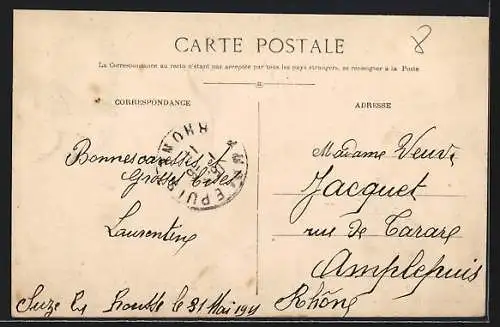 8
CARTE POSTALE
La Correspondance au recto n'étant pas acceptée par tous les pays étrangers, se renseigner à la Poste
CORRESPONDANCE
ADRESSE
Bonnes caresses et
Grosses bises
Laurentine
Suze la Rousse le 31 Mai 19
Madame Veuve
Jacquet
rue de Tarare
Amplepuis
Rhône
AMPLEPUIS RHONE